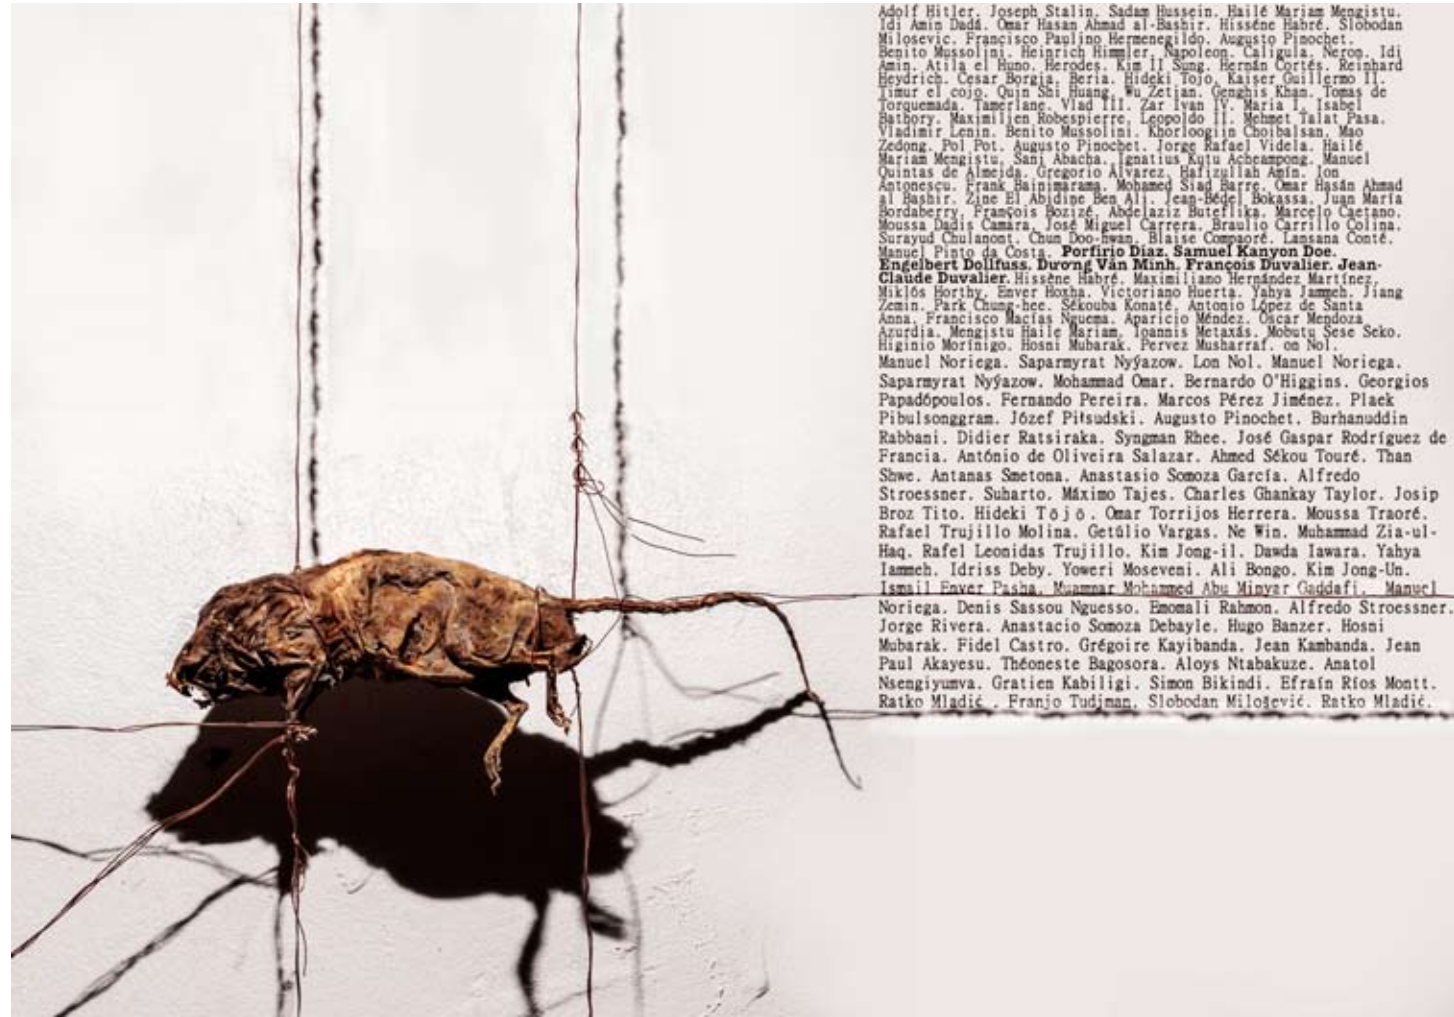 Adolf Hitler. Joseph Stalin. Sadam Hussein. Hailé Mariam Mengistu.
Idi Amin Dadá. Omar Hasan Ahmad al-Bashir. Hissène Habré. Slobodan
Milosevic. Francisco Paulino Hermenegildo. Augusto Pinochet.
Benito Mussolini. Heinrich Himmler. Napoleon. Caligula. Neron. Idi
Amin. Atila el Huno. Herodes. Kim Il Sung. Hernán Cortés. Reinhard
Heydrich. Cesar Borgia. Beria. Hideki Tojo. Kaiser Guillermo II.
Timur el cojo. Quin Shi Huang. Wu Zetian. Genghis Khan. Tomas de
Torquemada. Tamerlane. Vlad III. Zar Ivan IV. Maria I. Isabel
Bathory. Maximilien Robespierre. Leopoldo II. Mehmet Talat Pasa.
Vladimir Lenin. Benito Mussolini. Khorloogiin Choibalsan. Mao
Zedong. Pol Pot. Augusto Pinochet. Jorge Rafael Videla. Hailé
Mariam Mengistu. Sani Abacha. Ignatius Kutu Acheampong. Manuel
Quintas de Almeida. Gregorio Álvarez. Hafizullah Amín. Ion
Antonescu. Frank Bainimarama. Mohamed Siad Barre. Omar Hasán Ahmad
al Bashir. Zine El Abidine Ben Ali. Jean-Bédel Bokassa. Juan María
Bordaberry. François Bozizé. Abdelaziz Buteflika. Marcelo Caetano.
Moussa Dadis Camara. José Miguel Carrera. Braulio Carrillo Colina.
Surayud Chulanont. Chun Doo-hwan. Blaise Compaoré. Lansana Conté.
Manuel Pinto da Costa. Porfirio Diaz. Samuel Kanyon Doe.
Engelbert Dollfuss. Dương Văn Minh. François Duvalier. Jean-
Claude Duvalier. Hissène Habré. Maximiliano Hernández Martínez.
Miklós Horthy. Enver Hoxha. Victoriano Huerta. Yahya Jammeh. Jiang
Zemin. Park Chung-hee. Sékouba Konaté. Antonio López de Santa
Anna. Francisco Macías Nguema. Aparicio Méndez. Óscar Mendoza
Azurdia. Mengistu Haile Mariam. Ioannis Metaxás. Mobutu Sese Seko.
Higinio Morínigo. Hosni Mubarak. Pervez Musharraf. on Nol.
Manuel Noriega. Saparmyrat Nyýazow. Lon Nol. Manuel Noriega.
Saparmyrat Nyýazow. Mohammad Omar. Bernardo O'Higgins. Georgios
Papadópoulos. Fernando Pereira. Marcos Pérez Jiménez. Plaek
Pibulsonggram. Józef Piłsudski. Augusto Pinochet. Burhanuddin
Rabbani. Didier Ratsiraka. Syngman Rhee. José Gaspar Rodríguez de
Francia. António de Oliveira Salazar. Ahmed Sékou Touré. Than
Shwe. Antanas Smetona. Anastasio Somoza García. Alfredo
Stroessner. Suharto. Máximo Tajes. Charles Ghankay Taylor. Josip
Broz Tito. Hideki Tōjō. Omar Torrijos Herrera. Moussa Traoré.
Rafael Trujillo Molina. Getúlio Vargas. Ne Win. Muhammad Zia-ul-
Haq. Rafel Leonidas Trujillo. Kim Jong-il. Dawda Iawara. Yahya
Iammeh. Idriss Deby. Yoweri Moseveni. Ali Bongo. Kim Jong-Un.
Ismail Enver Pasha. Muammar Mohammed Abu Minyar Gaddafi. Manuel
Noriega. Denis Sassou Nguesso. Emomali Rahmon. Alfredo Stroessner.
Jorge Rivera. Anastacio Somoza Debayle. Hugo Banzer. Hosni
Mubarak. Fidel Castro. Grégoire Kayibanda. Jean Kambanda. Jean
Paul Akayesu. Théoneste Bagosora. Aloys Ntabakuze. Anatol
Nsengiyumva. Gratien Kabiligi. Simon Bikindi. Efraín Ríos Montt.
Ratko Mladić . Franjo Tudjman. Slobodan Milošević. Ratko Mladić.